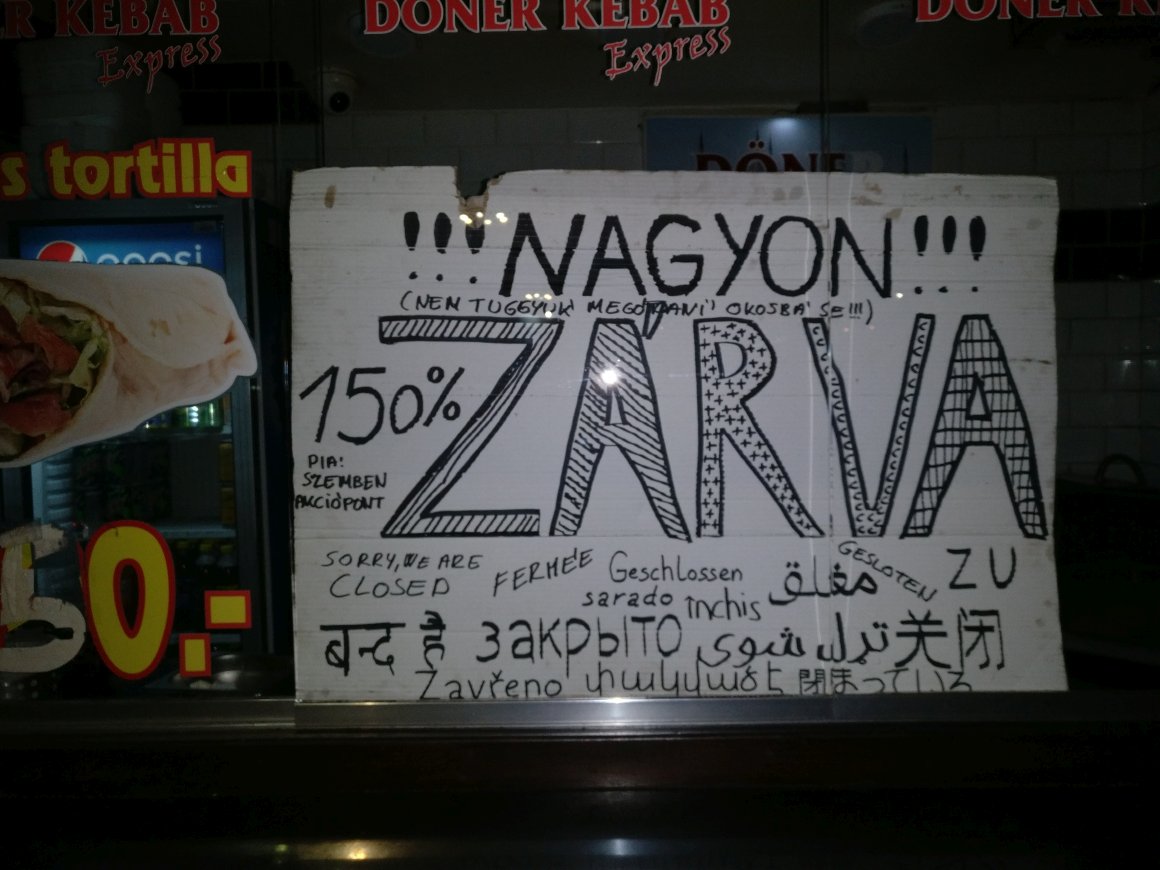 DÖNER KEBAB
Express
DÖNER KEBAB
Express
DÖNER
s tortilla
pepsi
DÖNE
!!! NAGYON !!!
(NEM TUGGYUK MEGÓDANI OKOSBA' SE!!!)
ZÁRVA
150%
PIA:
SZEMBEN
AKCIÓPONT
50.-
SORRY, WE ARE
CLOSED
FERMÉE
Geschlossen
sarado
închis
مغلق
GESLOTEN
ZU
बन्द है
закрыто
تړل شوی
关闭
Zavřeno
փակված է
閉まっている